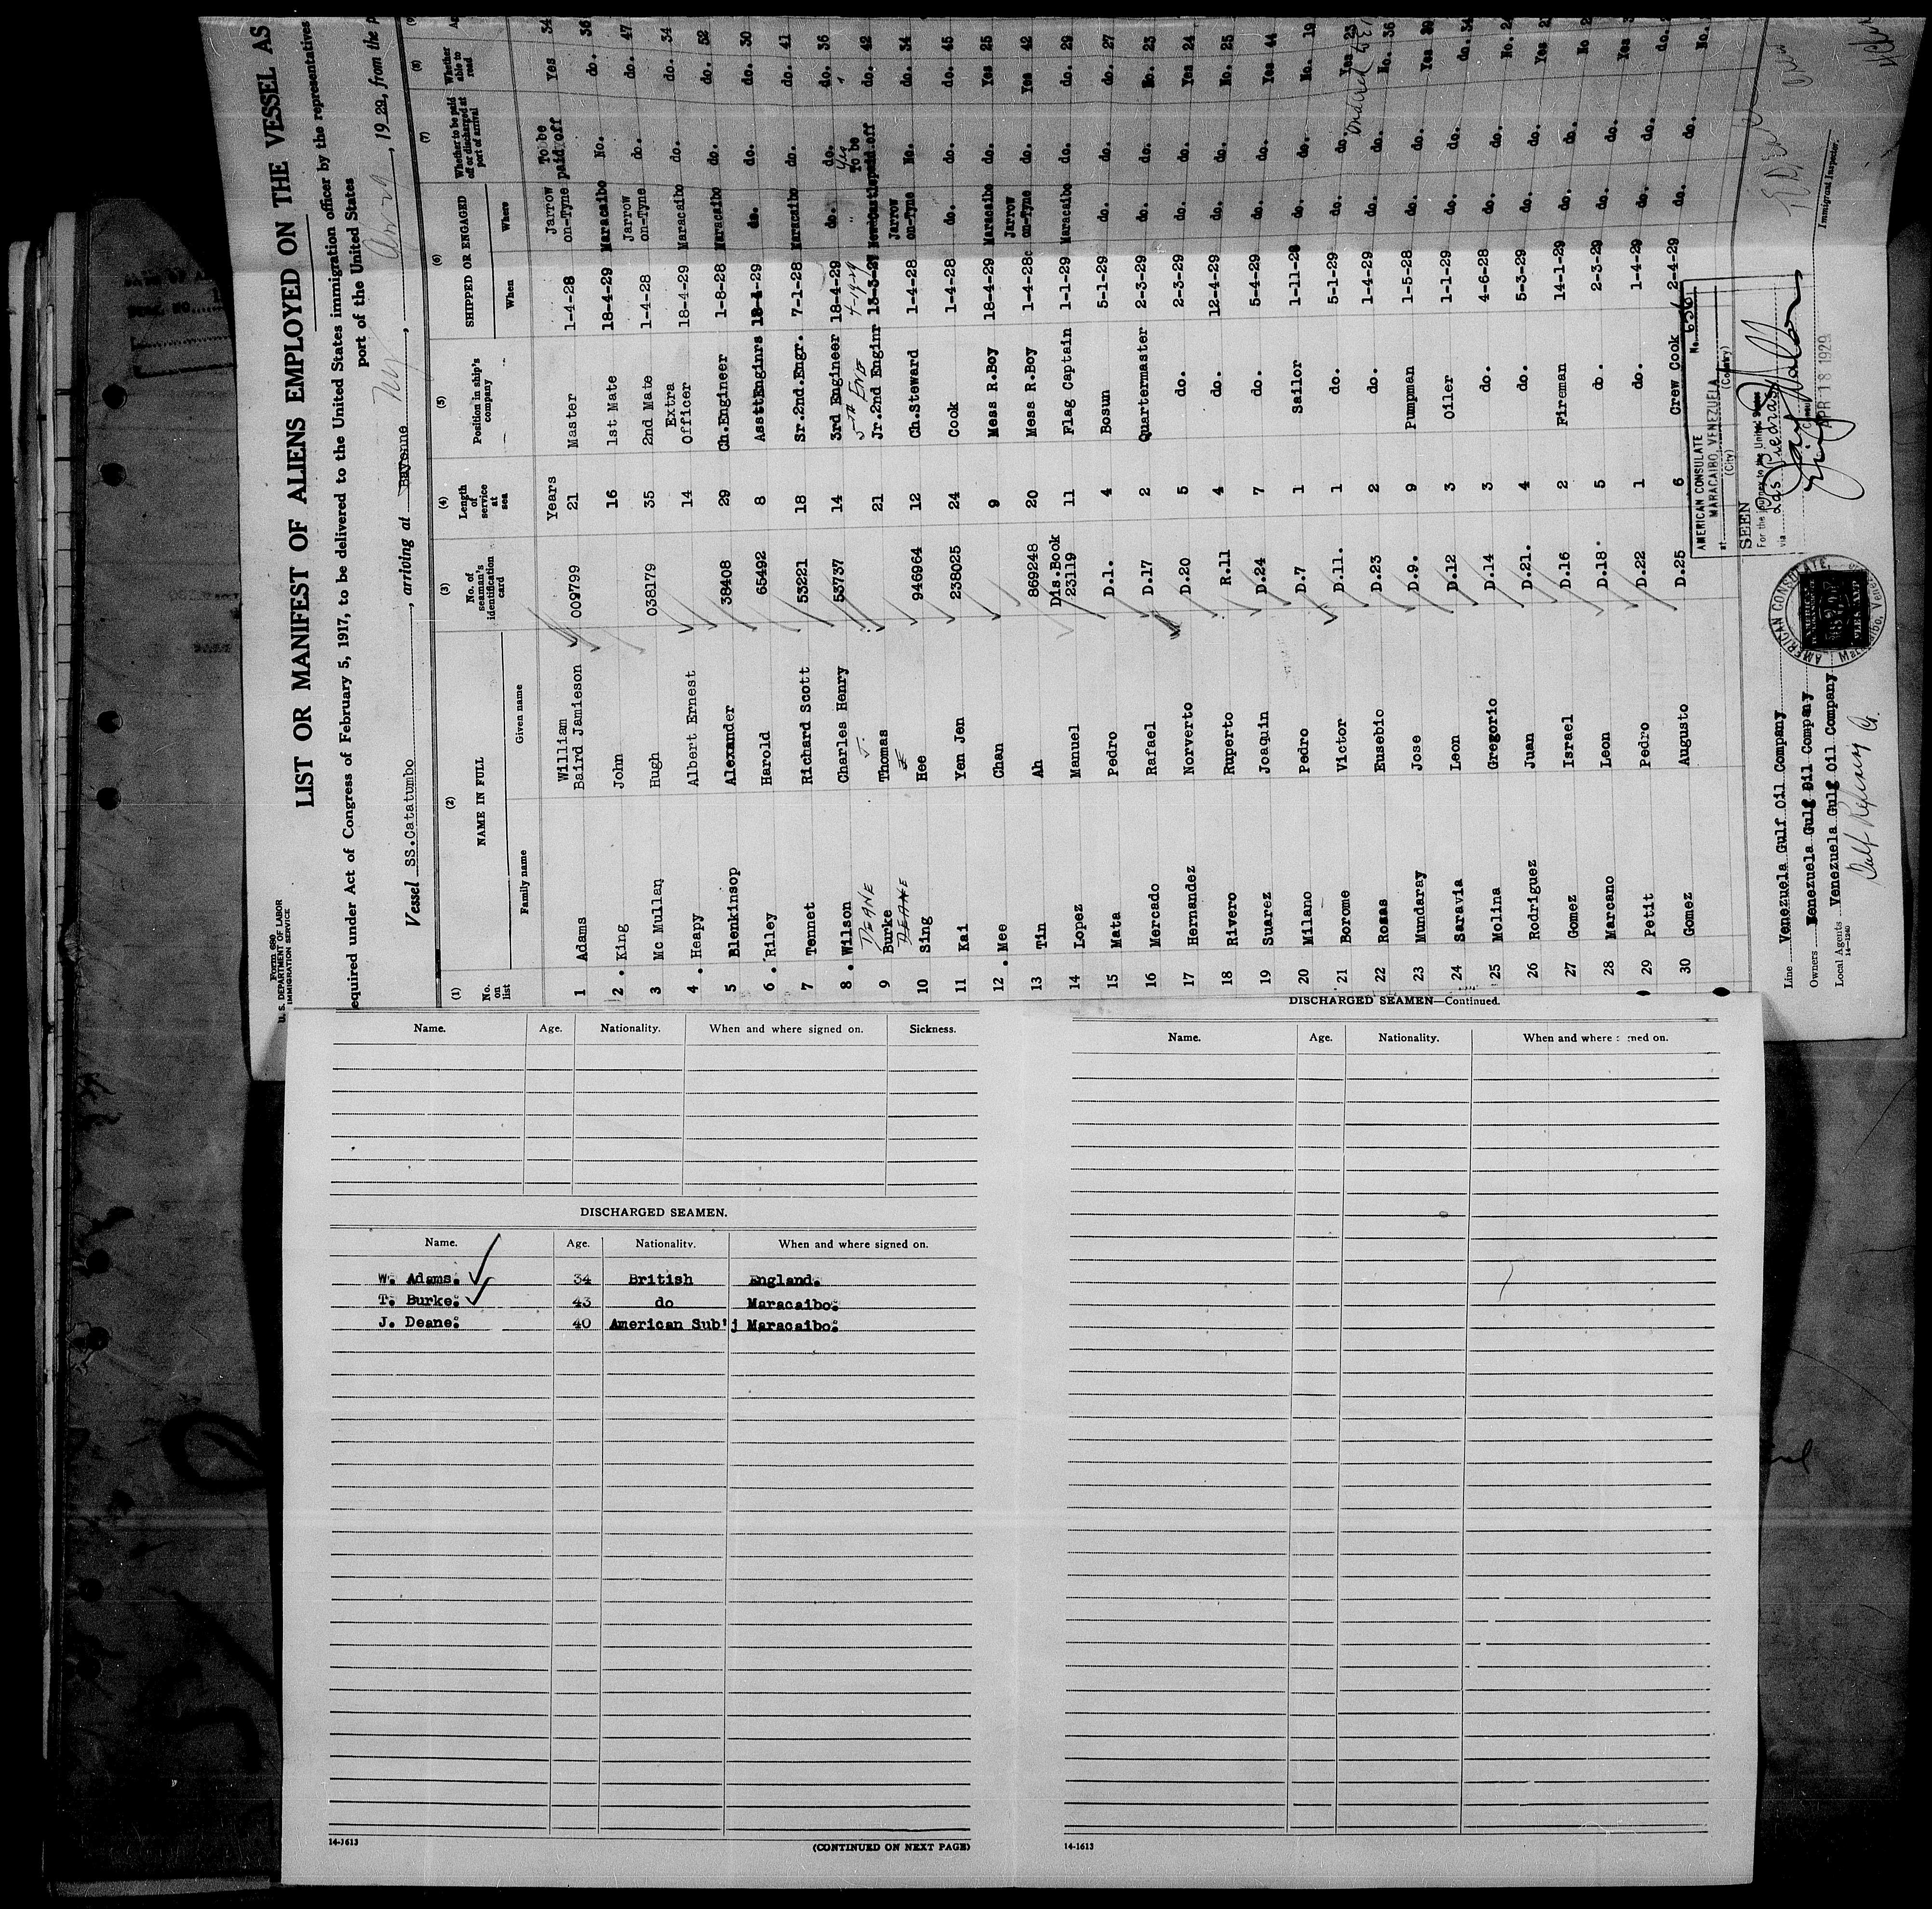 Form 680
U. S. DEPARTMENT OF LABOR
IMMIGRATION SERVICE
LIST OR MANIFEST OF ALIENS EMPLOYED ON THE VESSEL AS
equired under Act of Congress of February 5, 1917, to be delivered to the United States immigration officer by the representatives
port of the United States
Vessel SS.Catatumbo, arriving at Bayonne NY, 1929, from the p
(1) (2) (3) (4) (5) (6) (7) (8)
No. on list NAME IN FULL No. of seaman's identification card Length of service at sea Position in ship's company SHIPPED OR ENGAGED Whether to be paid off or discharged at port of arrival Whether able to read
Family name Given name When Where
1 Adams William Baird Jamieson 009799 Years 21 Master 1-4-28 Jarrow on-Tyne To be paid off Yes 34
2 King John 16 1st Mate 18-4-29 Maracaibo No. do. 36
3 Mc Mullan Hugh 038179 35 2nd Mate 1-4-28 Jarrow on-Tyne do. do. 47
4 Heapy Albert Ernest 14 Extra Officer 18-4-29 Maracaibo do. do. 34
5 Blenkinsop Alexander 38408 29 Ch.Engineer 1-8-28 Maracaibo do. do. 52
6 Riley Harold 65492 8 AsstEnginrs -29 do. do. do. 30
7 Tennet Richard Scott 53221 18 Sr.2nd.Engr. 7-1-28 Maracaibo do. do. 41
8 Wilson Charles Henry 53737 14 3rd Engineer 18-4-29 do. do. do. 36
DEANE J. 5TH ENG 4-19-29 " Yes
9 Burke Thomas 21 Jr.2nd Enginr 13-3-29 Newcastle To be paid off do. 42
DEANE
10 Sing Hee 946964 12 Ch.Steward 1-4-28 Jarrow on-Tyne No. do. 34
11 Kai Yen Jen 238025 24 Cook 1-4-28 do. do. do. 45
12 Mee Chan 9 Mess R.Boy 18-4-29 Maracaibo do. Yes 25
13 Tin Ah 869248 20 Mess R.Boy 1-4-28 Jarrow on-Tyne do. Yes 42
14 Lopez Manuel Dis.Book 23119 11 Flag Captain 1-1-29 Maracaibo do. do. 29
15 Mata Pedro D.1. 4 Bosun 5-1-29 do. do. do. 27
16 Mercado Rafael D.17 2 Quartermaster 2-3-29 do. do. No. 23
17 Hernandez Norverto D.20 5 do. 2-3-29 do. do. Yes 24
18 Rivero Ruperto R.11 4 do. 12-4-29 do. do. No. 25
19 Suarez Joaquin D.24 7 do. 5-4-29 do. do. Yes 44
20 Milano Pedro D.7 1 Sailor 1-11-28 do. do. No. 19
21 Borome Victor D.11. 1 do. 5-1-29 do. do. Yes 23
22 Rosas Eusebio D.23 2 do. 1-4-29 do. do. No. 36
23 Mundaray Jose D.9. 9 Pumpman 1-5-28 do. do. Yes 39
24 Saravia Leon D.12 3 Oiler 1-1-29 do. do. do. 34
25 Molina Gregorio D.14 3 do. 4-6-28 do. do. No. 2
26 Rodriguez Juan D.21. 4 do. 5-3-29 do. do. Yes 2
27 Gomez Israel D.16 2 Fireman 14-1-29 do. do. No 2
28 Marcano Leon D.18 5 do. 2-3-29 do. do. Yes
29 Petit Pedro D.22 1 do. 1-4-29 do. do. do.
30 Gomez Augusto D.25 6 Crew Cook 2-4-29 do. do. No.
AMERICAN CONSULATE No. 636
at MARACAIBO, VENEZUELA
(City) (Country)
SEEN
For the journey to the United States
via Las Piedras
APR 18 1929
Immigrant Inspector.
AMERICAN CONSULATE, Maracaibo, Venez
Line Venezuela Gulf Oil Company
Owners Venezuela Gulf Oil Company
Local Agents Venezuela Gulf Oil Company
14-1240
Gulf Refining Co.
Name. Age. Nationality. When and where signed on. Sickness.
DISCHARGED SEAMEN.
Name. Age. Nationality. When and where signed on.
W. Adams. 34 British England.
T. Burke. 43 do Maracaibo.
J. Deane. 40 American Sub'j Maracaibo.
14-1613
(CONTINUED ON NEXT PAGE)
DISCHARGED SEAMEN—Continued.
Name. Age. Nationality. When and where signed on.
14-1613